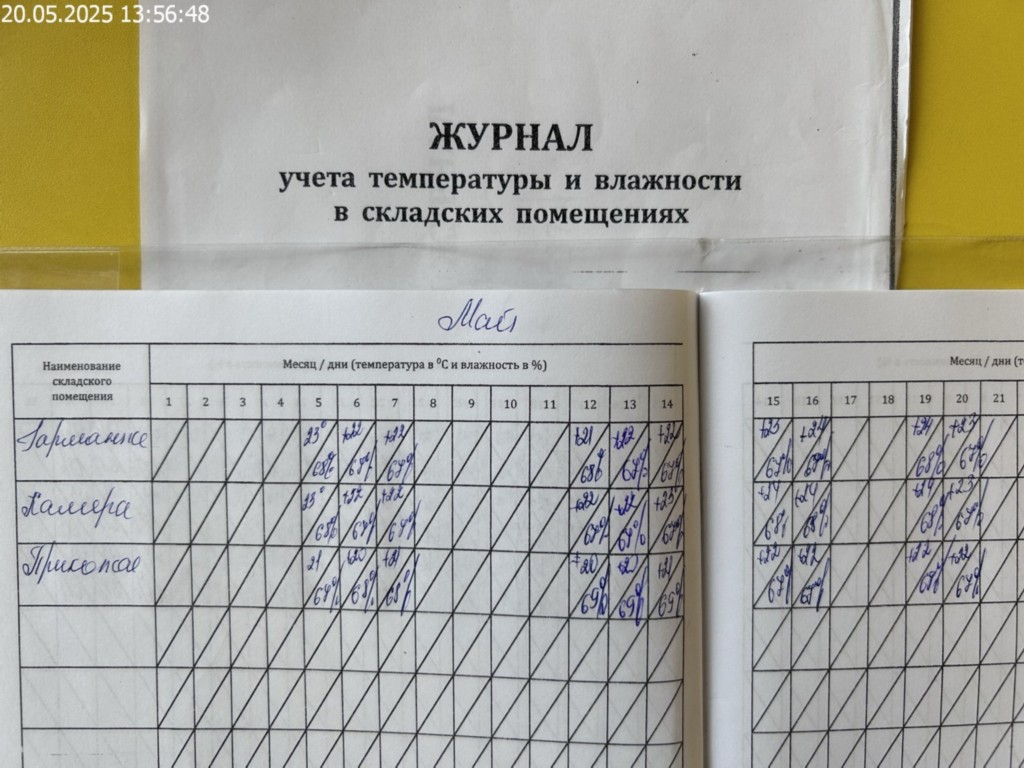 20.05.2025 13:56:48
ЖУРНАЛ
учета температуры и влажности
в складских помещениях
Май
Наименование
складского
помещения
Месяц / дни (температура в ⁰С и влажность в %)
1 2 3 4 5 6 7 8 9 10 11 12 13 14
Месяц / дни (т
15 16 17 18 19 20 21
23° +22 +22 +21 +22 +22 +23 +24 +24 +23
68% 67% 67% 68% 67% 67% 67% 67% 68% 67%
Камера 23° +22 +22 +22 +22 +23 +24 +24 +24 +23
68% 67% 67% 67% 67% 67% 68% 68% 68% 67%
21 +20 +21 +20 +20 +21 +22 +22 +22 +22
67% 68% 68% 69% 69% 69% 67% 67% 68% 67%